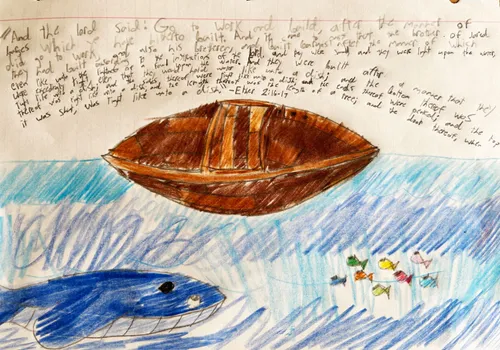 And the lord said: Go to work and build, after the manner of
which ye have hitherto built. And it came to pass that the brother of Jared
did go to work, and also his brethren, and built barges after the manner of which
they had built, according to the instructions of the lord. And they were small, and they were light upon the water,
even like unto the of a fowl upon the water. And they were built after a manner that they
were tight, even that they would hold water like unto a dish; and the bottom thereof was
tight like unto a dish; and the thereof were tight like unto a dish; and the ends thereof were peaked; and the
thereof was tight like unto a dish; and the length thereof was the length of a tree; and the door thereof, when
it was shut, was tight like unto a dish. -Ether 2:16-17